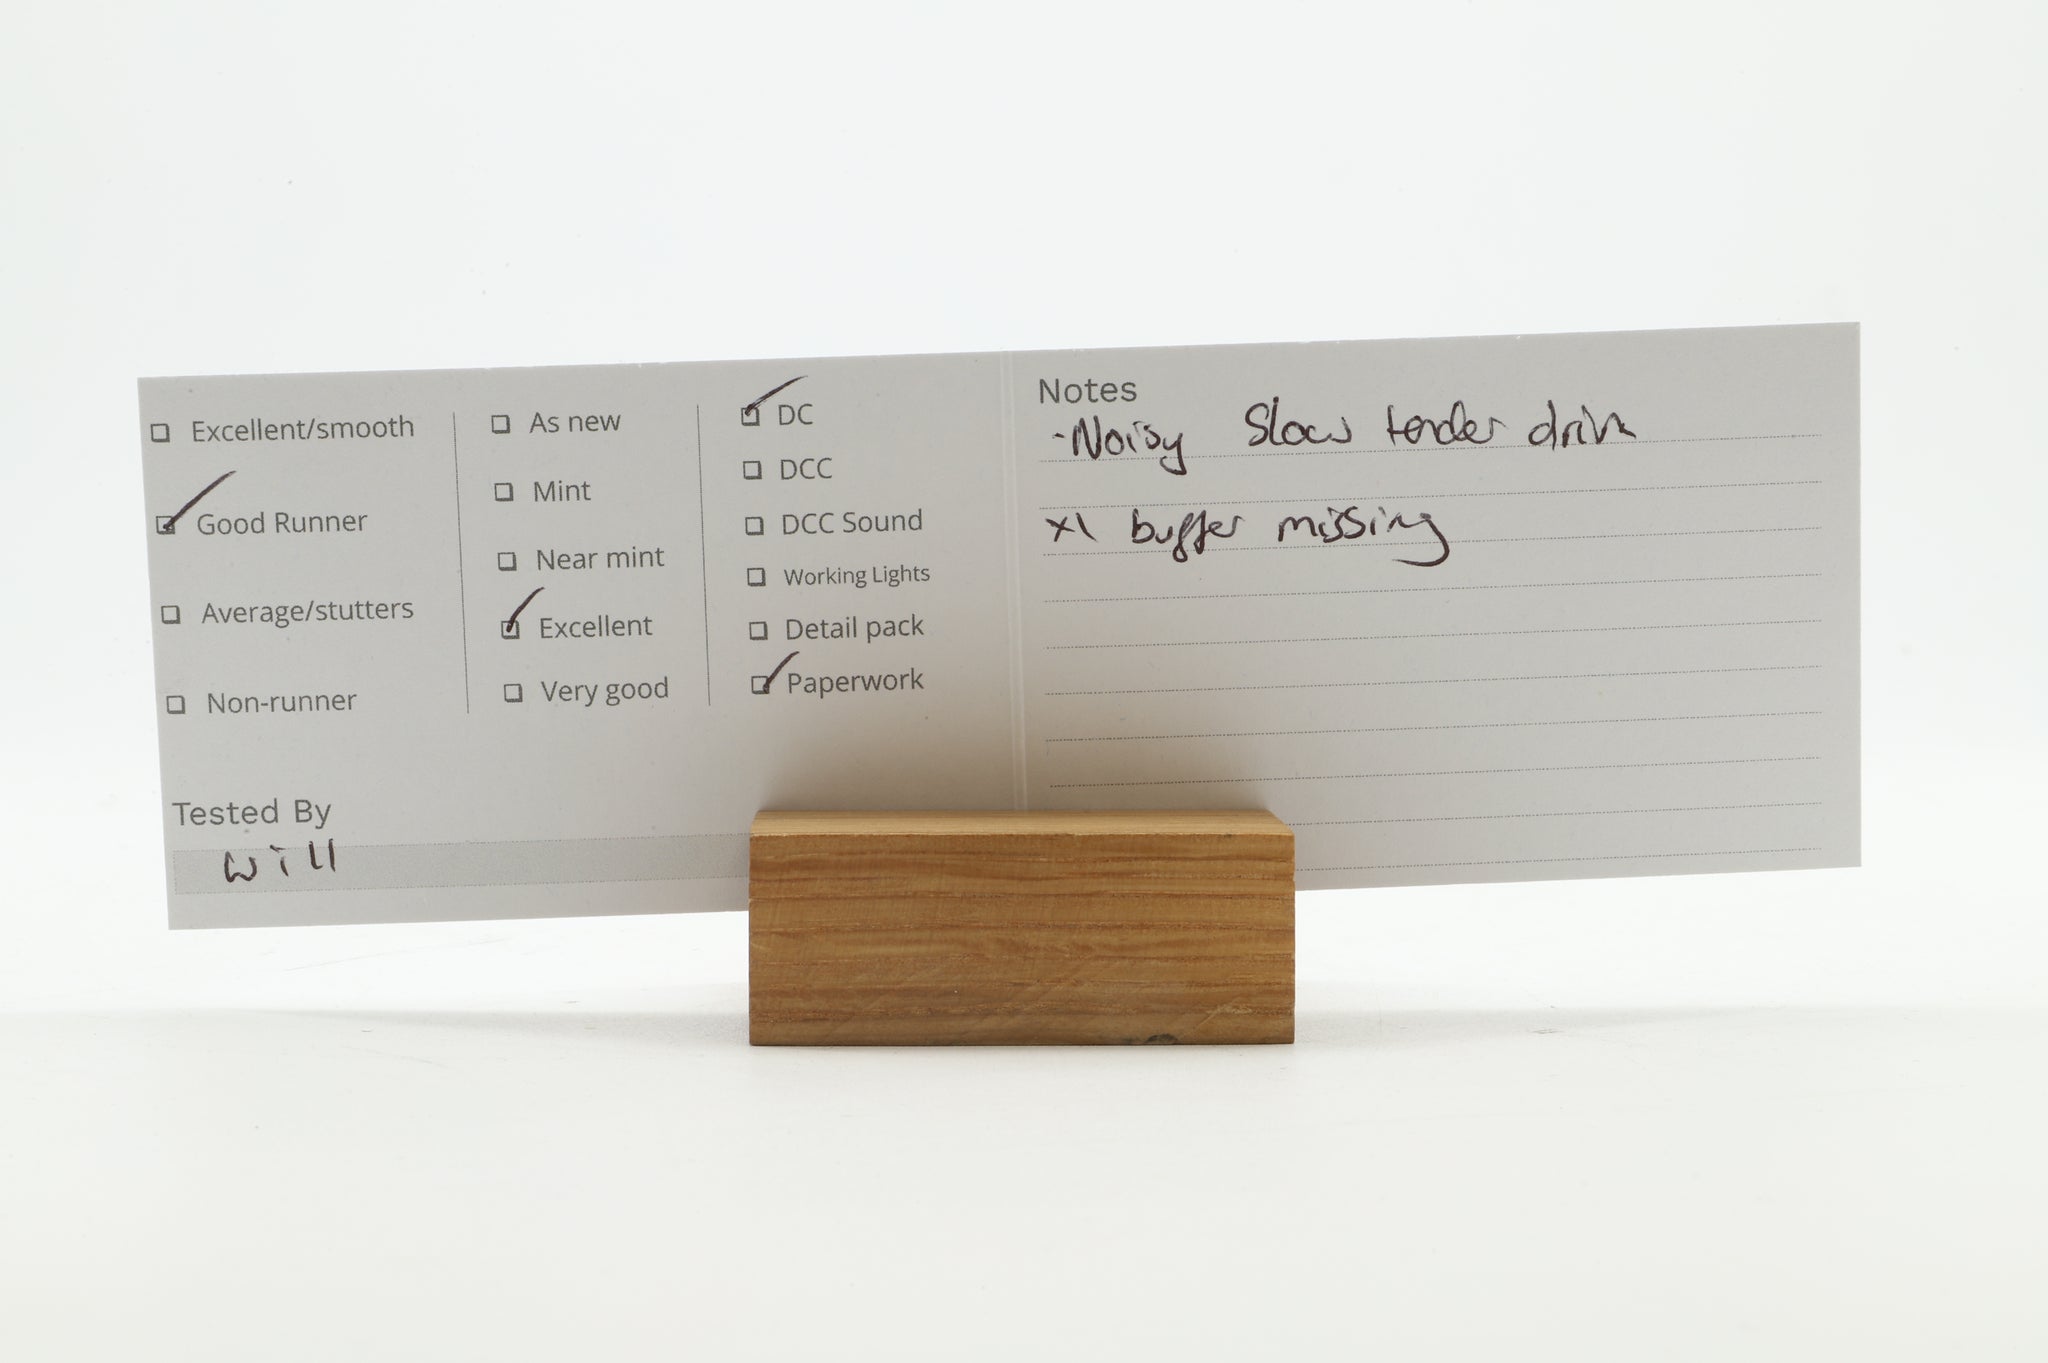 Excellent/smooth
Good Runner
Average/stutters
Non-runner
As new
Mint
Near mint
Excellent
Very good
DC
DCC
DCC Sound
Working Lights
Detail pack
Paperwork
Tested By
Will
Notes
-Noisy Slow tender drive
x1 buffer missing